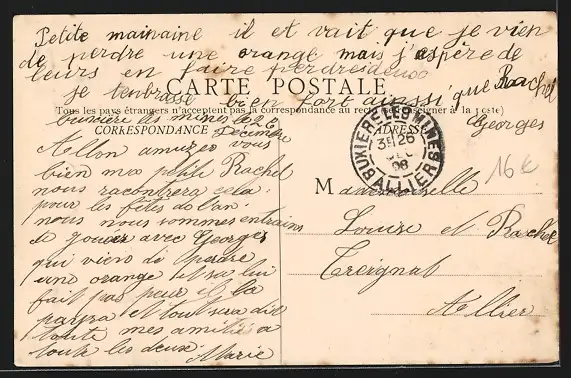 Petite mainaine il et vait que je vien
de perdre une orange mais j'aspère de
leurs en faire perdre deuos
CARTE POSTALE
je t'enbrasse bien fort ainssi que Rachel
Tous les pays étrangers n'acceptent pas la correspondance au recto (se renseigner à la poste)
Georges
buxière les mines le 26
Décembre
CORRESPONDANCE
ADRESSE
BUXIERE-LES-MINES
3E 26
DEC
08
ALLIER
16€
Allon amusez vous
bien ma ptite Rachel
nous racontrera cela
pour les fêtes de l'an
nous nous sommes entrains
de jouer avec Georges
qui vien de perdre
une orange et sa lui
fait pas peur il la
payra et tout sera dit
toute mes amitié a
toute les deux. Marie
Mademoiselle
Louise et Rachel
Treignat
Allier